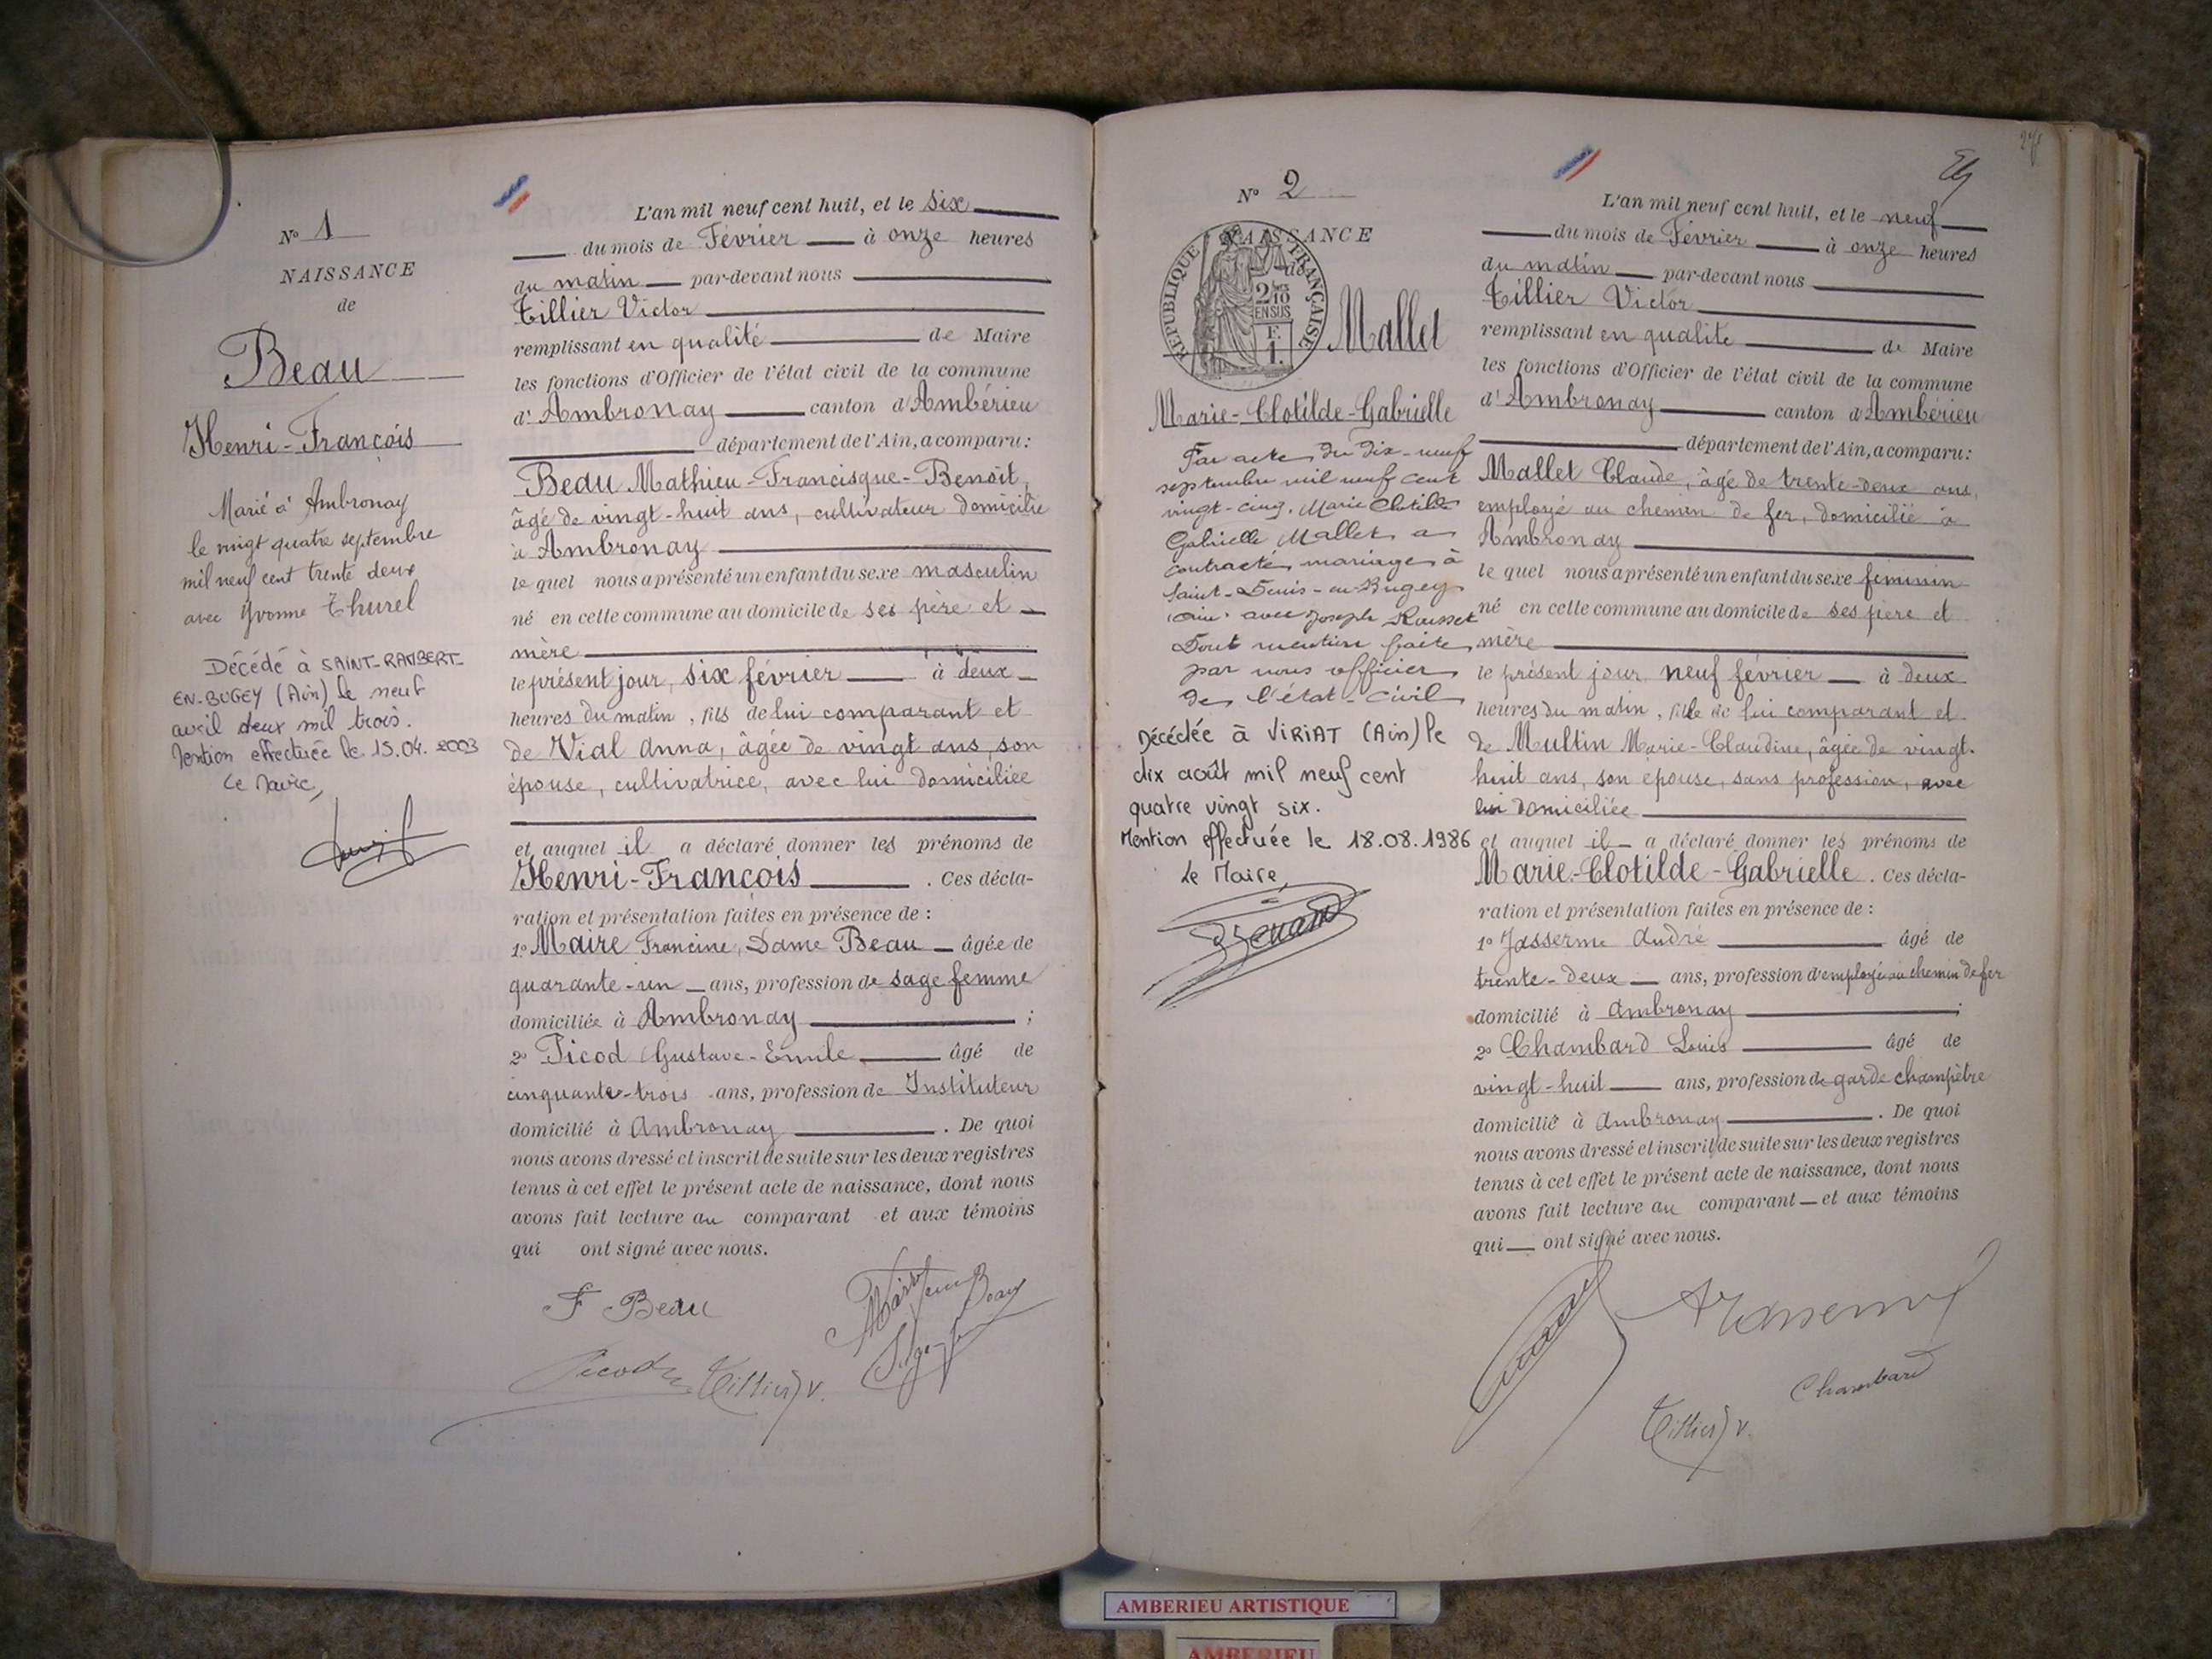 N° 1
NAISSANCE
de
Beau
Henri-François
Marié à Ambronay
le vingt quatre septembre
mil neuf cent trente deux
avec Yvonne Thurel
Décédé à SAINT-RAMBERT-
EN-BUGEY (Ain) le neuf
avril deux mil trois.
Mention effectuée le 15.04.2003
Le Maire,
L'an mil neuf cent huit, et le six
du mois de Février à onze heures
du matin par-devant nous
Tillier Victor
remplissant en qualité de Maire
les fonctions d'Officier de l'état civil de la commune
d'Ambronay canton d'Ambérieu
département de l'Ain, a comparu:
Beau Mathieu-Francisque-Benoît,
âgé de vingt-huit ans, cultivateur domicilié
à Ambronay
le quel nous a présenté un enfant du sexe masculin
né en cette commune au domicile de ses père et
mère
le présent jour, six février à deux
heures du matin, fils de lui comparant et
de Vial Anna, âgée de vingt ans, son
épouse, cultivatrice, avec lui domiciliée
et auquel il a déclaré donner les prénoms de
Henri-François. Ces décla-
ration et présentation faites en présence de :
1° Maire Francine, Dame Beau âgée de
quarante-un ans, profession de sage femme
domiciliée à Ambronay ;
2° Picod Gustave-Emile âgé de
cinquante-trois ans, profession de Instituteur
domicilié à Ambronay. De quoi
nous avons dressé et inscrit de suite sur les deux registres
tenus à cet effet le présent acte de naissance, dont nous
avons fait lecture au comparant et aux témoins
qui ont signé avec nous.
F Beau
Picod Tillier V.
N° 2
NAISSANCE
de
REPUBLIQUE FRANÇAISE
2/10 EN SUS
F.
1.
Mallet
Marie-Clotilde-Gabrielle
Par acte du dix-neuf
septembre mil neuf cent
vingt-cinq, Marie Clotilde
Gabrielle Mallet a
contracté mariage à
Saint-Denis-en-Bugey
Ain avec Joseph Rousset
Dont mention faite
par nous officier
de l'état-civil
Décédée à VIRIAT (Ain) le
dix août mil neuf cent
quatre vingt six.
Mention effectuée le 18.08.1986
Le Maire,
L'an mil neuf cent huit, et le neuf
du mois de Février à onze heures
du matin par-devant nous
Tillier Victor
remplissant en qualité de Maire
les fonctions d'Officier de l'état civil de la commune
d'Ambronay canton d'Ambérieu
département de l'Ain, a comparu:
Mallet Claude, âgé de trente-deux ans,
employé au chemin de fer, domicilié à
Ambronay
le quel nous a présenté un enfant du sexe féminin
né en cette commune au domicile de ses père et
mère
le présent jour, neuf février à deux
heures du matin, fille de lui comparant et
de Multin Marie-Claudine, âgée de vingt-
huit ans, son épouse, sans profession, avec
lui domiciliée
et auquel il a déclaré donner les prénoms de
Marie-Clotilde-Gabrielle. Ces décla-
ration et présentation faites en présence de :
1° Jasserme André âgé de
trente-deux ans, profession d'employé au chemin de fer
domicilié à Ambronay ;
2° Chambard Louis âgé de
vingt-huit ans, profession de garde champêtre
domicilié à Ambronay. De quoi
nous avons dressé et inscrit de suite sur les deux registres
tenus à cet effet le présent acte de naissance, dont nous
avons fait lecture au comparant et aux témoins
qui ont signé avec nous.
Chambard
Tillier V.
AMBERIEU ARTISTIQUE
AMBERIEU